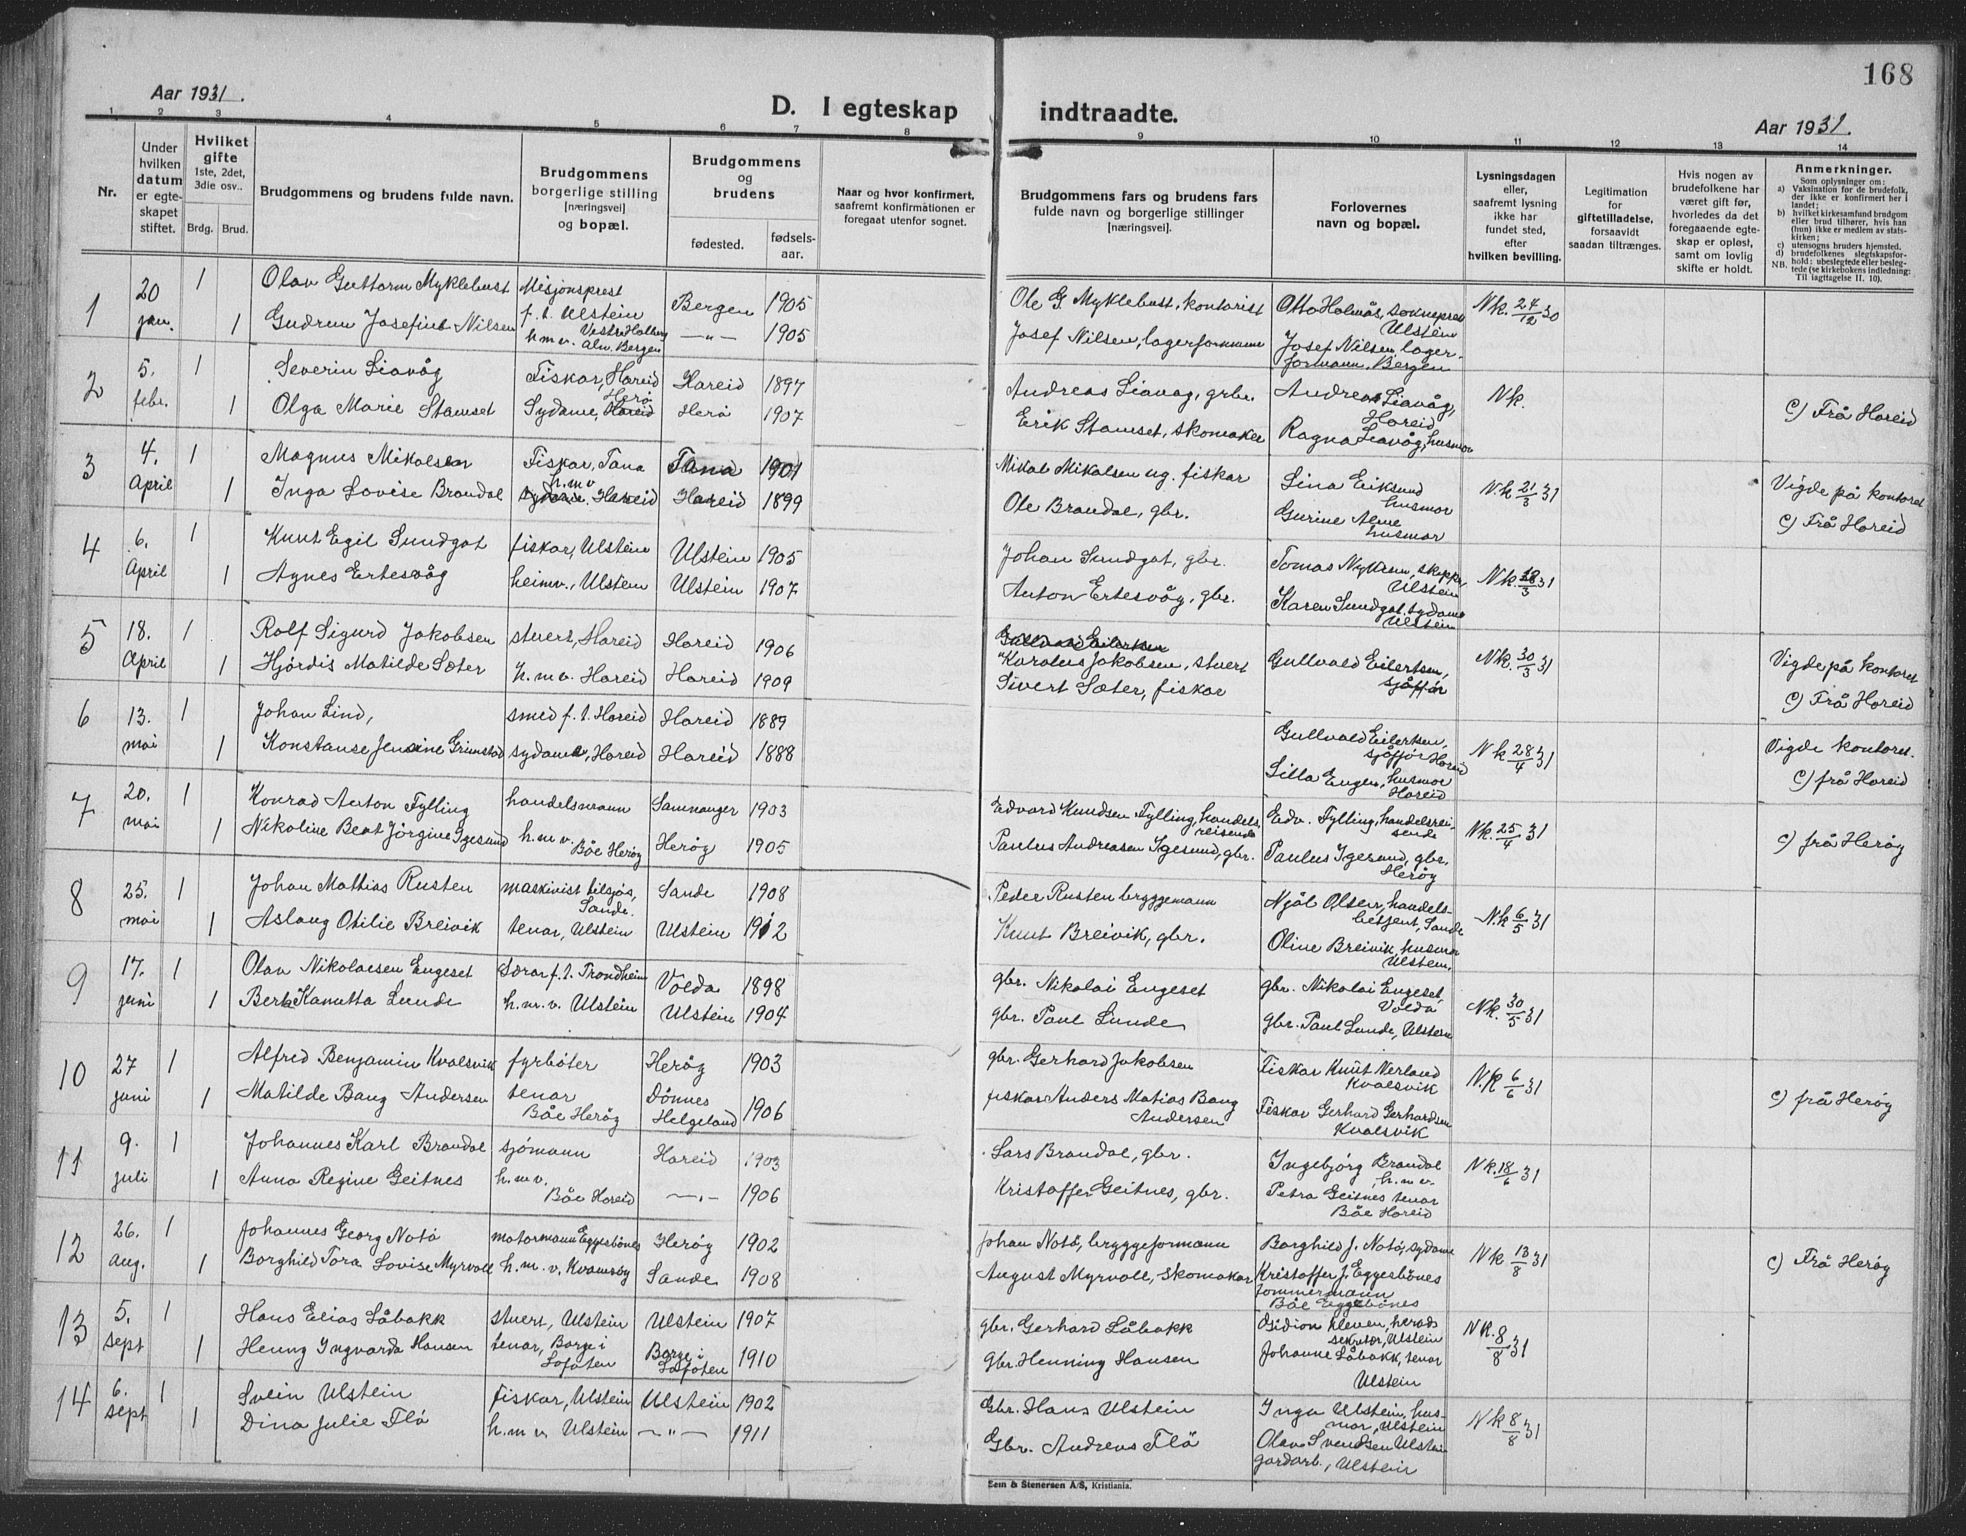 168
Aar 1931.
D. I egteskap indtraadte.
Aar 1931.
1 2 3 4 5 6 7 8 9 10 11 12 13 14
Nr.
Under hvilken datum er egteskapet stiftet.
Hvilket gifte
1ste, 2det, 3die osv..
Brdg. Brud.
Brudgommens og brudens fulde navn.
Brudgommens borgerlige stilling [næringsvei] og bopæl.
Brudgommens og brudens
fødested.
fødselsaar.
Naar og hvor konfirmert, saafremt konfirmationen er foregaat utenfor sognet.
Brudgommens fars og brudens fars fulde navn og borgerlige stillinger [næringsvei].
Forlovernes navn og bopæl.
Lysningsdagen eller, saafremt lysning ikke har fundet sted, efter hvilken bevilling.
Legitimation for giftetilladelse, forsaavidt saadan tiltrænges.
Hvis nogen av brudefolkene har været gift før, hvorledes da det foregaaende egteskap er opløst, samt om lovlig skifte er holdt.
Anmerkninger.
Som oplysninger om:
a) Vaksination for de brudefolk, der ikke er konfirmert her i landet;
b) hvilket kirkesamfund brudgom eller brud tilhører, hvis han (hun) ikke er medlem av statskirken;
c) utensogns bruders hjemsted.
d) brudefolkenes slegtskapsforhold: ubeslegtede eller beslegtede (se kirkebokens indledning:
NB. Til iagttagelse II. 10).
1 20 jan. 1 Olav Guttorm Myklebust Misjonsprest f. t. Ulstein Bergen 1905 Ole G. Myklebust, kontorist Otto Holmås, sokneprest Ulstein Nk. 24/12 30
1 Gudrun Josefine Nilsen h.m.v. Vestre Holberg Alm. Bergen —"— 1905 Josef Nilsen, lagerformann Josef Nilsen lagerformann, Bergen
2 5. febr. 1 Severin Liavåg Fiskar, Hareid Hareid 1897 Andreas Liavåg, grbr. Andreas Liavåg, Hareid Nk.
1 Olga Marie Stamset Sydame, Hareid Herö Herö 1907 Erik Stamset, skomaker Ragna Liavåg, husmor c) Frå Hareid
3 4. April 1 Magnus Mikalsen Fiskar, Tana Tana 1901 Mikal Mikalsen ug. fiskar Lina Eiksund husmor N.k 21/3 31 Vigde på kontoret
1 Inga Lovise Brandal sydame h.m.v. Hareid Hareid 1899 Ole Brandal, gbr. Gurine Alme husmor c) Frå Hareid
4 6. April 1 Knut Egil Sundgot fiskar, Ulstein Ulstein 1905 Johan Sundgot, gbr. Tomas Myklebust, skippr, Ulstein Nk. 28/3 31
1 Agnes Ertesvåg heimv., Ulstein Ulstein 1907 Anton Ertesvåg, gbr. Karen Sundgot, sydame Ulstein
5 18. April 1 Rolf Sigurd Jakobsen stuert, Hareid Hareid 1906 Gullvald Eilertsen Karolus Jakobsen, stuert Gullvald Eilertsen, sjåffør Nk. 30/3 31 Vigde på kontoret
1 Hjördis Matilde Sæter h.m.v. Hareid Hareid 1909 Sivert Sæter, fiskar c) Frå Hareid
6 13. mai 1 Johan Lind, smed f. t. Hareid Hareid 1889 Gullvald Eilertsen, sjåffør Hareid Nk 28/4 31 Vigde kontoret.
1 Konstanse Jensine Grimstad sydame, Hareid Hareid 1888 Lilla Engen, husmor Hareid c) frå Hareid
7 20. mai 1 Konrad Anton Tylling handelsmann Samnanger 1903 Edvard Knudsen Tylling, handelsreisende Edv. Tylling, handelsreisende Nk. 25/4 31
1 Nikoline Beat Jörgine Igesund h.m.v. Båe Heröy Heröy 1905 Paulus Andreasen Igesund, gbr. Paulus Igesund, gbr, Heröy c) frå Heröy
8 25. mai 1 Johan Mattias Rusten maskinist tilsjøs, Sande. Sande 1908 Peder Rusten bryggemann Njål Olsen, handelsbetjent, Sande N.k 6/5 31
1 Aslaug Otilie Breivik tenar, Ulstein Ulstein 1912 Knut Breivik, gbr. Oline Breivik, husmor Ulstein.
9 17. juni 1 Olav Nikolaesen Engeset Lærar f. t. Trondheim Volda 1898 gbr. Nikolai Engeset gbr. Nikolai Engeset, Volda Nk. 30/5 31
1 Berte Kanutta Lunde h.m.v. Ulstein Ulstein 1904 gbr. Paul Lunde gbr. Paul Lunde, Ulstein
10 27 juni 1 Alfred Benjamin Kvalsvik fyrböter Heröy 1903 gbr. Gerhard Jakobsen Fiskar Knut Nerland Kvalsvik N.K 6/6 31
1 Matilde Bang Andersen tenar Båe Heröy Dönnes Helgeland 1906 fiskar Anders Matias Bang Andersen Fiskar Gerhard Gerhardsen Kvalsvik c) frå Heröy
11 9. juli 1 Johannes Karl Brandal sjömann Hareid 1903 Lars Brandal, gbr. Ingebjörg Brandal h.m.v. Nk. 18/6 31
1 Anna Regine Geitnes h.m.v. Båe Hareid —"— 1906 Kristoffer Geitnes, gbr. Petra Geitnes tenar Båe Hareid
12 26. aug. 1 Johannes Georg Notö motormann Eggesbönes Heröy 1902 Johan Notö, bryggeformann Borghild J. Notö, sydame Nk 13/8 31
1 Borghild Tora Lovise Myrvoll h.m.v. Kvamsøy Sande 1908 August Myrvoll, skomakar Kristoffer J. Eggesbönes tömmermann Båe Eggesbönes c) Frå Heröy
13 5. sept 1 Hans Elias Låbakk stuert, Ulstein Ulstein 1907 gbr. Gerhard Låbakk Gidion Kleven, heradssekretær, Ulstein NK. 8/8 31
1 Henny Ingvarda Hansen tenar, Borge i Lofoten Borge i Lofoten 1910 gbr. Henning Hansen Johanne Låbakk, tenar Ulstein
14 6. sept 1 Svein Ulstein fiskar, Ulstein Ulstein 1902 Gbr. Hans Ulstein Inga Ulstein, husmor, Ulstein Nk 8/8 31
1 Dina Julie Flö h.m.v Ulstein —"— 1911 Gbr. Andreas Flö Olav Svendsen Ulstein gardarb., Ulstein
Sem & Stenersen A/S, Kristiania.